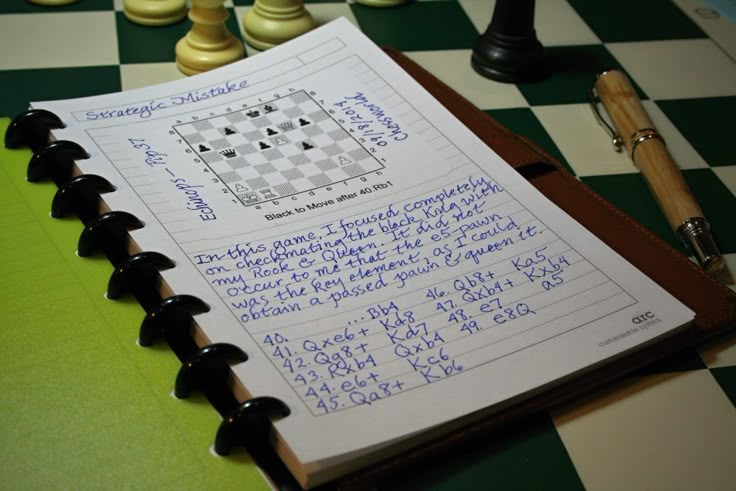 Strategic Mistake
Echecops - Pip.87
Chessworld
09/18/2019
a b c d e f g h
8
7
6
5
4
3
2
1
a b c d e f g h
Black to Move after 40.Rb1
In this game, I focused completely
on checkmating the black King with
my Rook & Queen. It did not
occur to me that the e5 pawn
was the key element, as I could
obtain a passed pawn & queen it.
40. ... Bb4
41. Qxe6+ Kd8
42. Qg8+ Kd7
43. Rxb4 Qxb4
44. e6+ Kc6
45. Qa8+ Kb6
46. Qb8+ Ka5
47. Qxb4+ Kxb4
48. e7 a5
49. e8Q
arc
customizable system